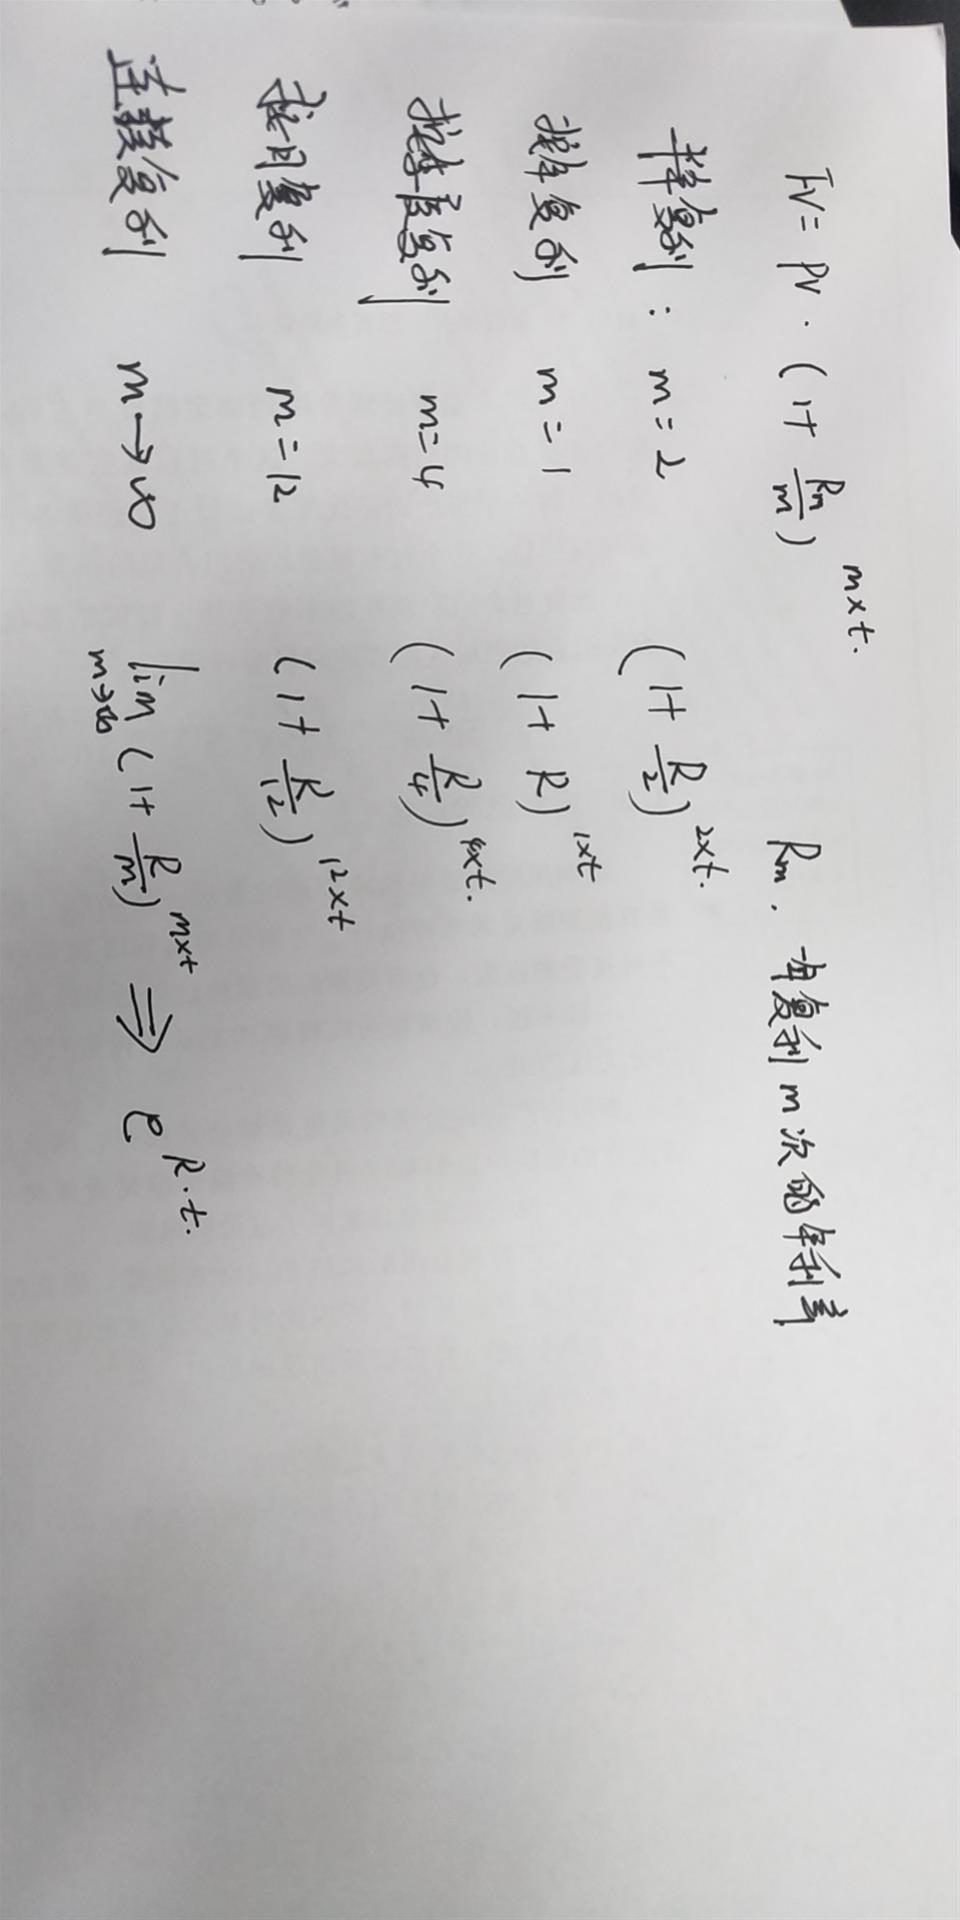 FV = PV · (1+ Rm/m)^m×t. Rm. 每复利m次的年利率
半年复利: m=2 (1+ R/2)^2×t.
按年复利 m=1 (1+R)^1×t
按季度复利 m=4 (1+ R/4)^4×t.
按月复利 m=12 (1+ R/12)^12×t
连续复利 m→∞ lim m→∞ (1+ R/m)^m×t ⇒ e^R·t.